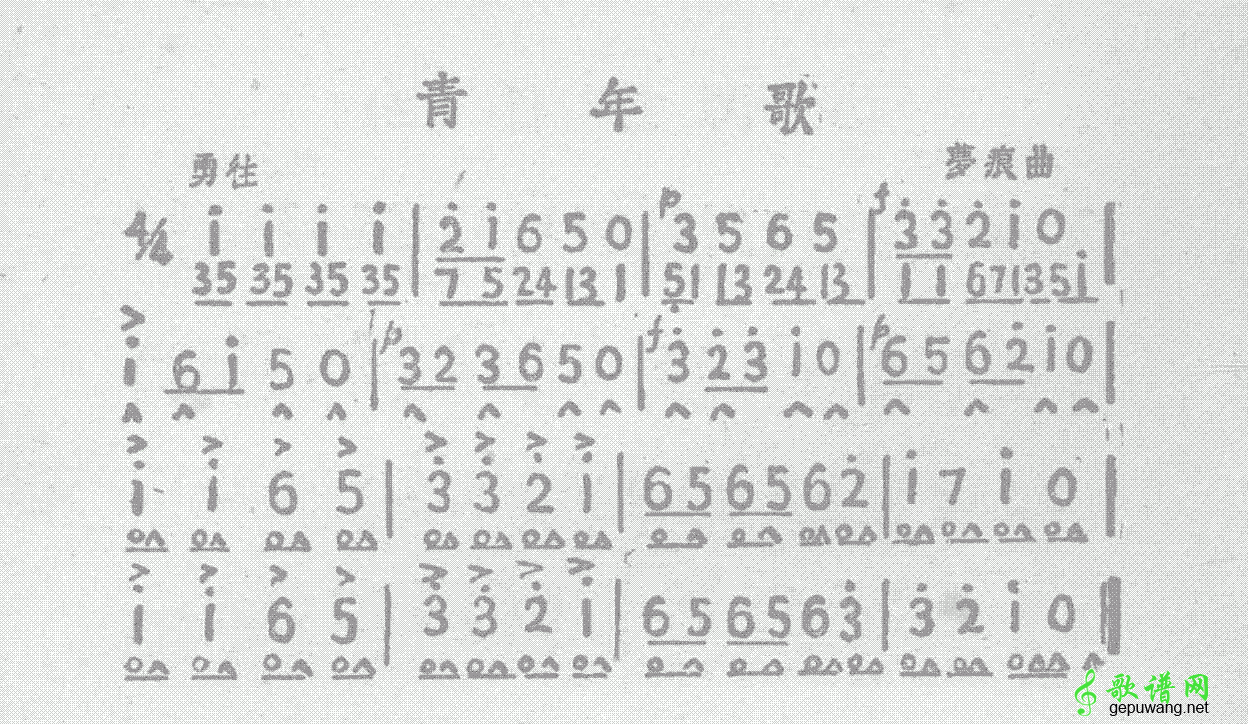 青 年 歌
勇壮
夢痕曲
4/4 i i i i | 2̇ i 6 5 0 | p 3 5 6 5 | f 3̇ 3̇ 2̇ i 0 |
35 35 35 35 | 7 5 24 13 1 | 51 13 24 13 | 1 1 67135i |
> i 6 i 5 0 | p 3 2 3 6 5 0 | f 3̇ 2̇ 3̇ i 0 | p 6 5 6 2̇ i 0 |
> > > > | > > > >
i i 6 5 | 3̇ 3̇ 2̇ i | 6 5 6 5 6 2̇ | i 7 i 0 |
> > > > | > > > >
i i 6 5 | 3̇ 3̇ 2̇ i | 6 5 6 5 6 3̇ | 3̇ 2̇ i 0 ‖
歌谱网
gepuwang.net